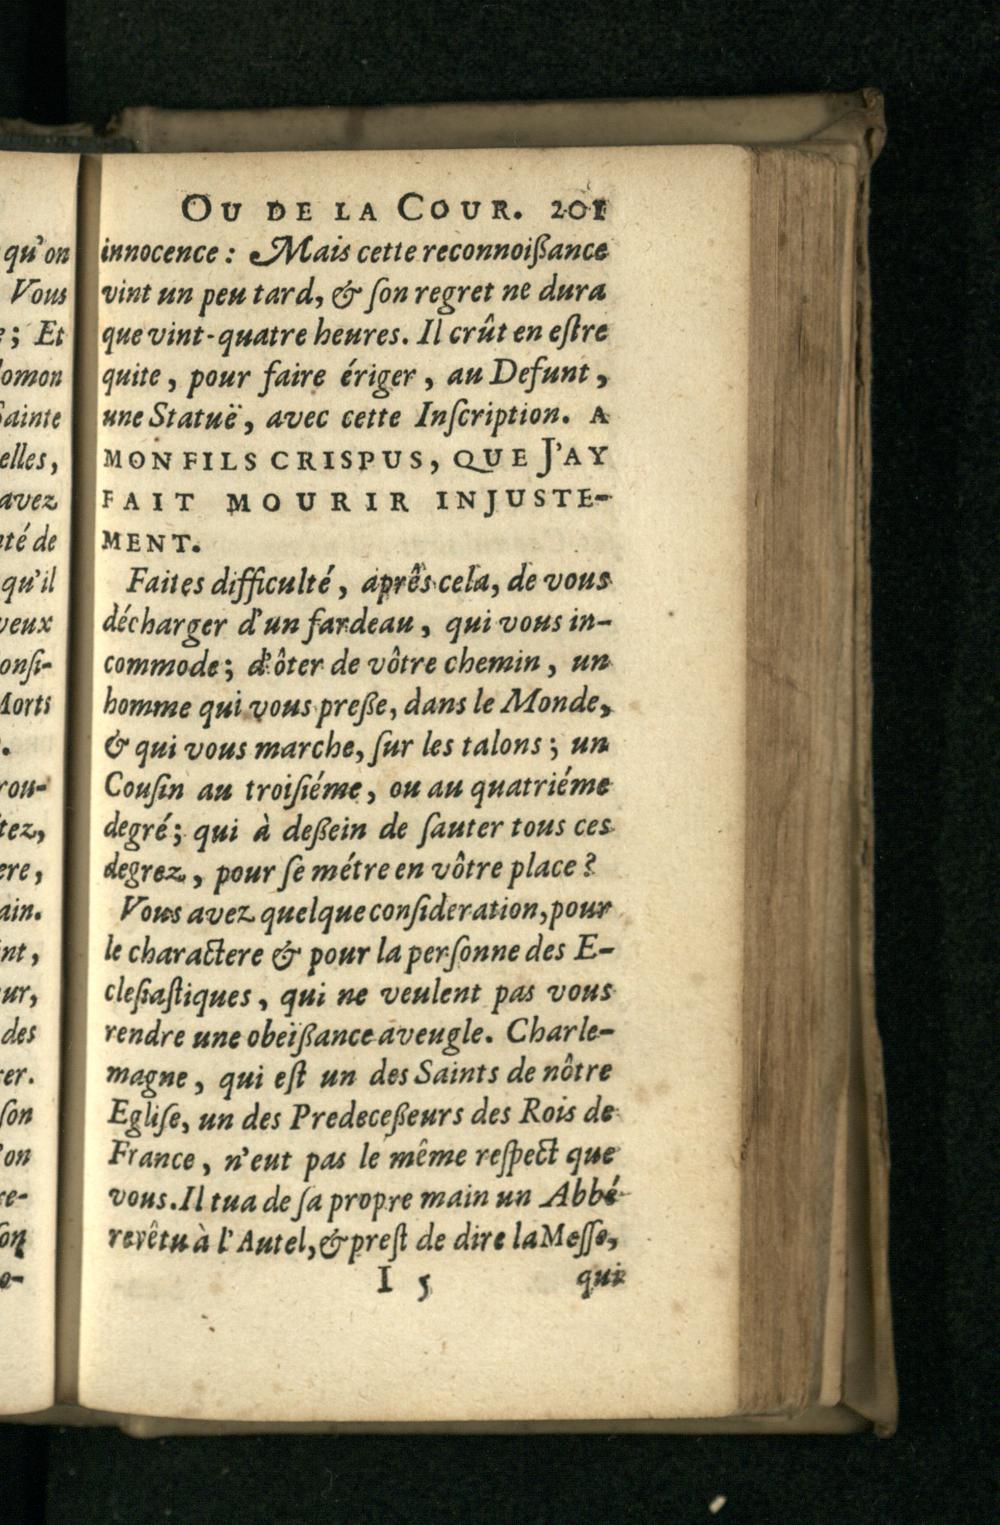 OU DE LA COUR. 201
innocence : Mais cette reconnoißance
vint un peu tard, & ſon regret ne dura
que vint-quatre heures. Il crût en eſtre
quite, pour faire ériger, au Defunt,
une Statuë, avec cette Inſcription. A
MON FILS CRISPUS, QUE J'AY
FAIT MOURIR INJUSTE-
MENT.
Faites difficulté, aprês cela, de vous
décharger d'un fardeau, qui vous in-
commode; d'ôter de vôtre chemin, un
homme qui vous preße, dans le Monde,
& qui vous marche, ſur les talons; un
Couſin au troiſiéme, ou au quatriéme
degré; qui à deßein de ſauter tous ces
degrez, pour ſe métre en vôtre place?
Vous avez quelque conſideration, pour
le charactere & pour la perſonne des E-
cleſiaſtiques, qui ne veulent pas vous
rendre une obeißance aveugle. Charle-
magne, qui eſt un des Saints de nôtre
Egliſe, un des Predeceßeurs des Rois de
France, n'eut pas le même reſpect que
vous. Il tua de ſa propre main un Abbé
revêtu à l'Autel, & preſt de dire la Meſſe,
I 5 qui
qu'on
Vous
; Et
omon
Sainte
elles,
avez
té de
qu'il
veux
onſi-
Morts
.
rou-
tez,
ere,
ain.
nt,
ur,
des
rer.
ſon
'on
re-
ſon
e-